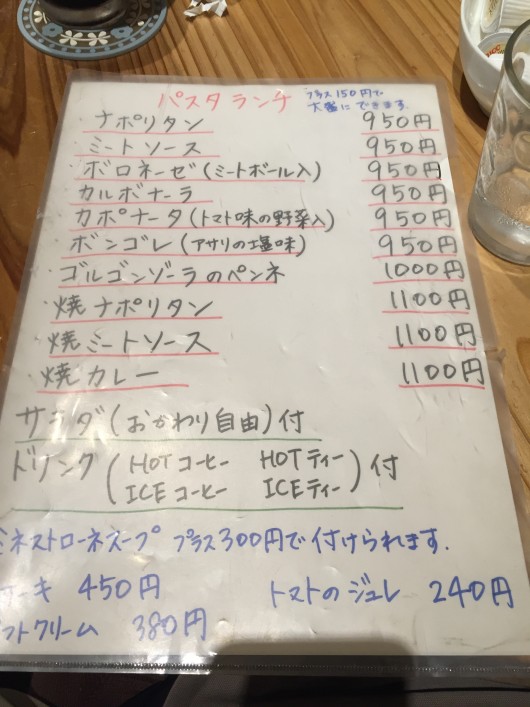 パスタランチ
プラス150円で
大盛にできます。
ナポリタン 950円
ミートソース 950円
ボロネーゼ(ミートボール入) 950円
カルボナーラ 950円
カポナータ(トマト味の野菜入) 950円
ボンゴレ(アサリの塩味) 950円
ゴルゴンゾーラのペンネ 1000円
焼ナポリタン 1100円
焼ミートソース 1100円
焼カレー 1100円
サラダ(おかわり自由)付
ドリンク(HOTコーヒー HOTティー)付
ICEコーヒー ICEティー
ミネストローネスープ プラス300円で付けられます.
ケーキ 450円 トマトのジュレ 240円
ソフトクリーム 380円